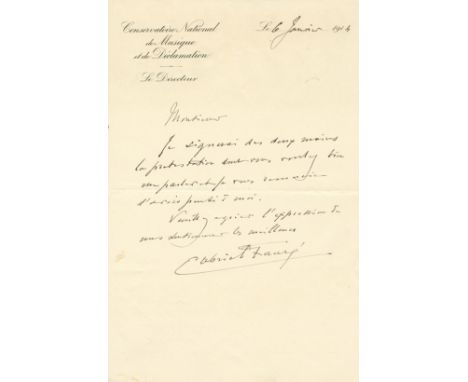 Conservatoire National
de Musique
et de Déclamation
Le Directeur
Le 6 Janvier 1914
Monsieur
Je signerai des deux mains
la protestation dont vous voulez bien
me parler et je vous remercie
d'avoir pensé à moi.
Veuillez agréer l'expression de
mes sentiments les meilleurs
Gabriel Fauré